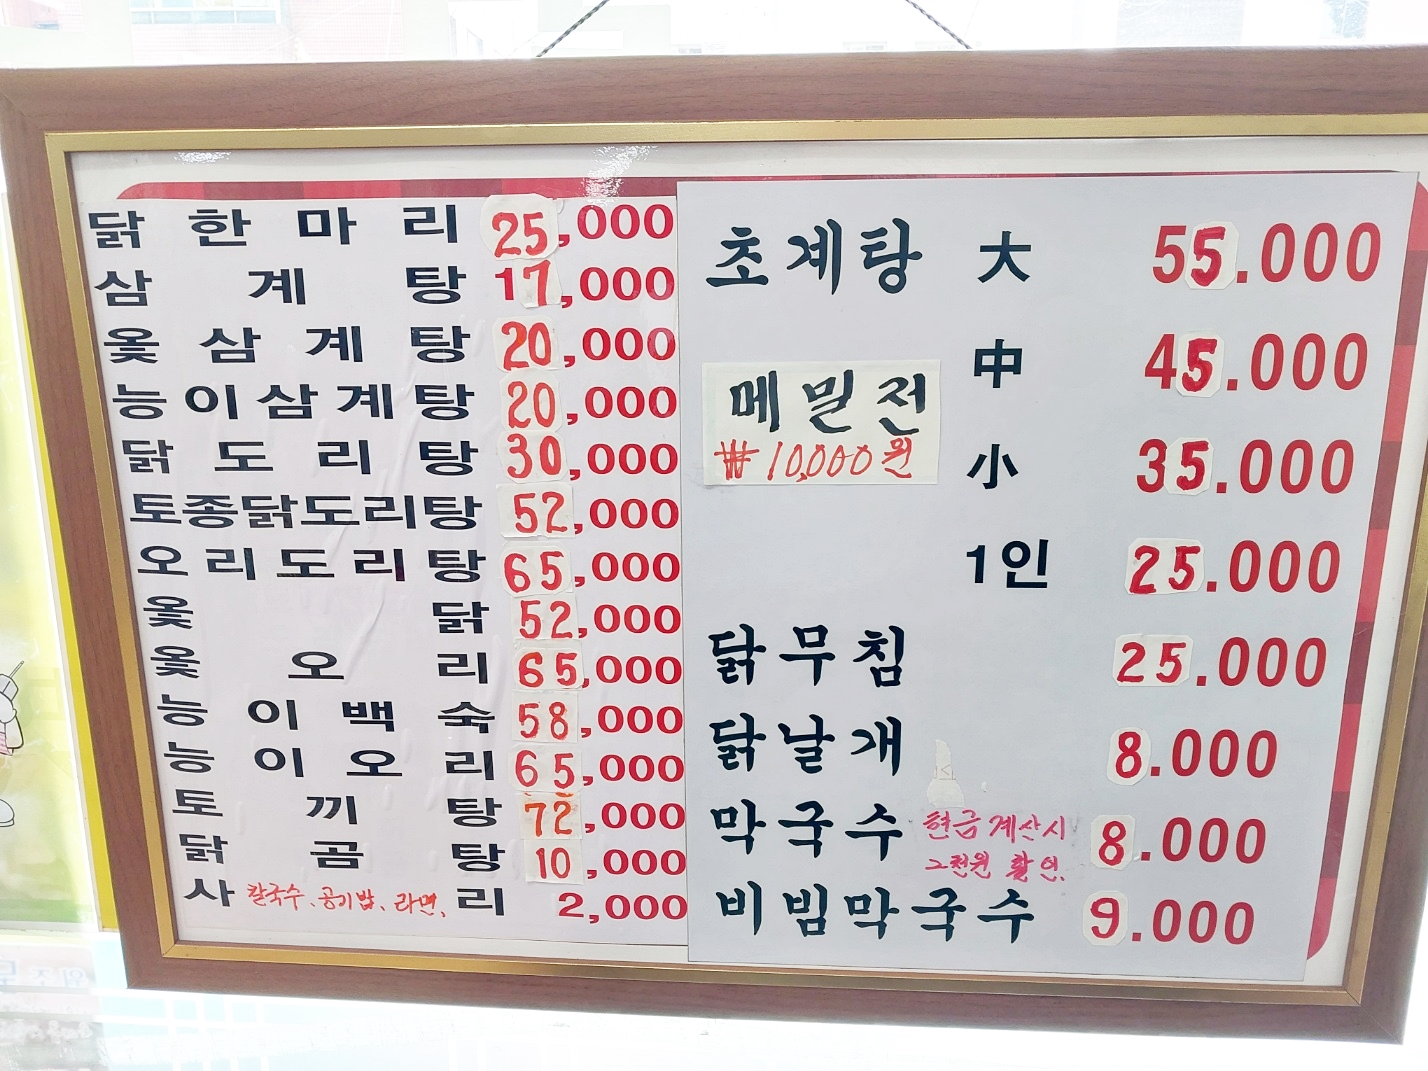 닭한마리 25,000
삼계탕 17,000
옻삼계탕 20,000
능이삼계탕 20,000
닭도리탕 30,000
토종닭도리탕 52,000
오리도리탕 65,000
옻닭 52,000
옻오리 65,000
능이백숙 58,000
능이오리 65,000
토끼탕 72,000
닭곰탕 10,000
사 칼국수、공기밥、라면、 리 2,000
초계탕 大 55.000
中 45.000
메밀전
₩10,000원
小 35.000
1인 25.000
닭무침 25.000
닭날개 8.000
막국수 현금계산시 8.000
2천원 할인.
비빔막국수 9.000